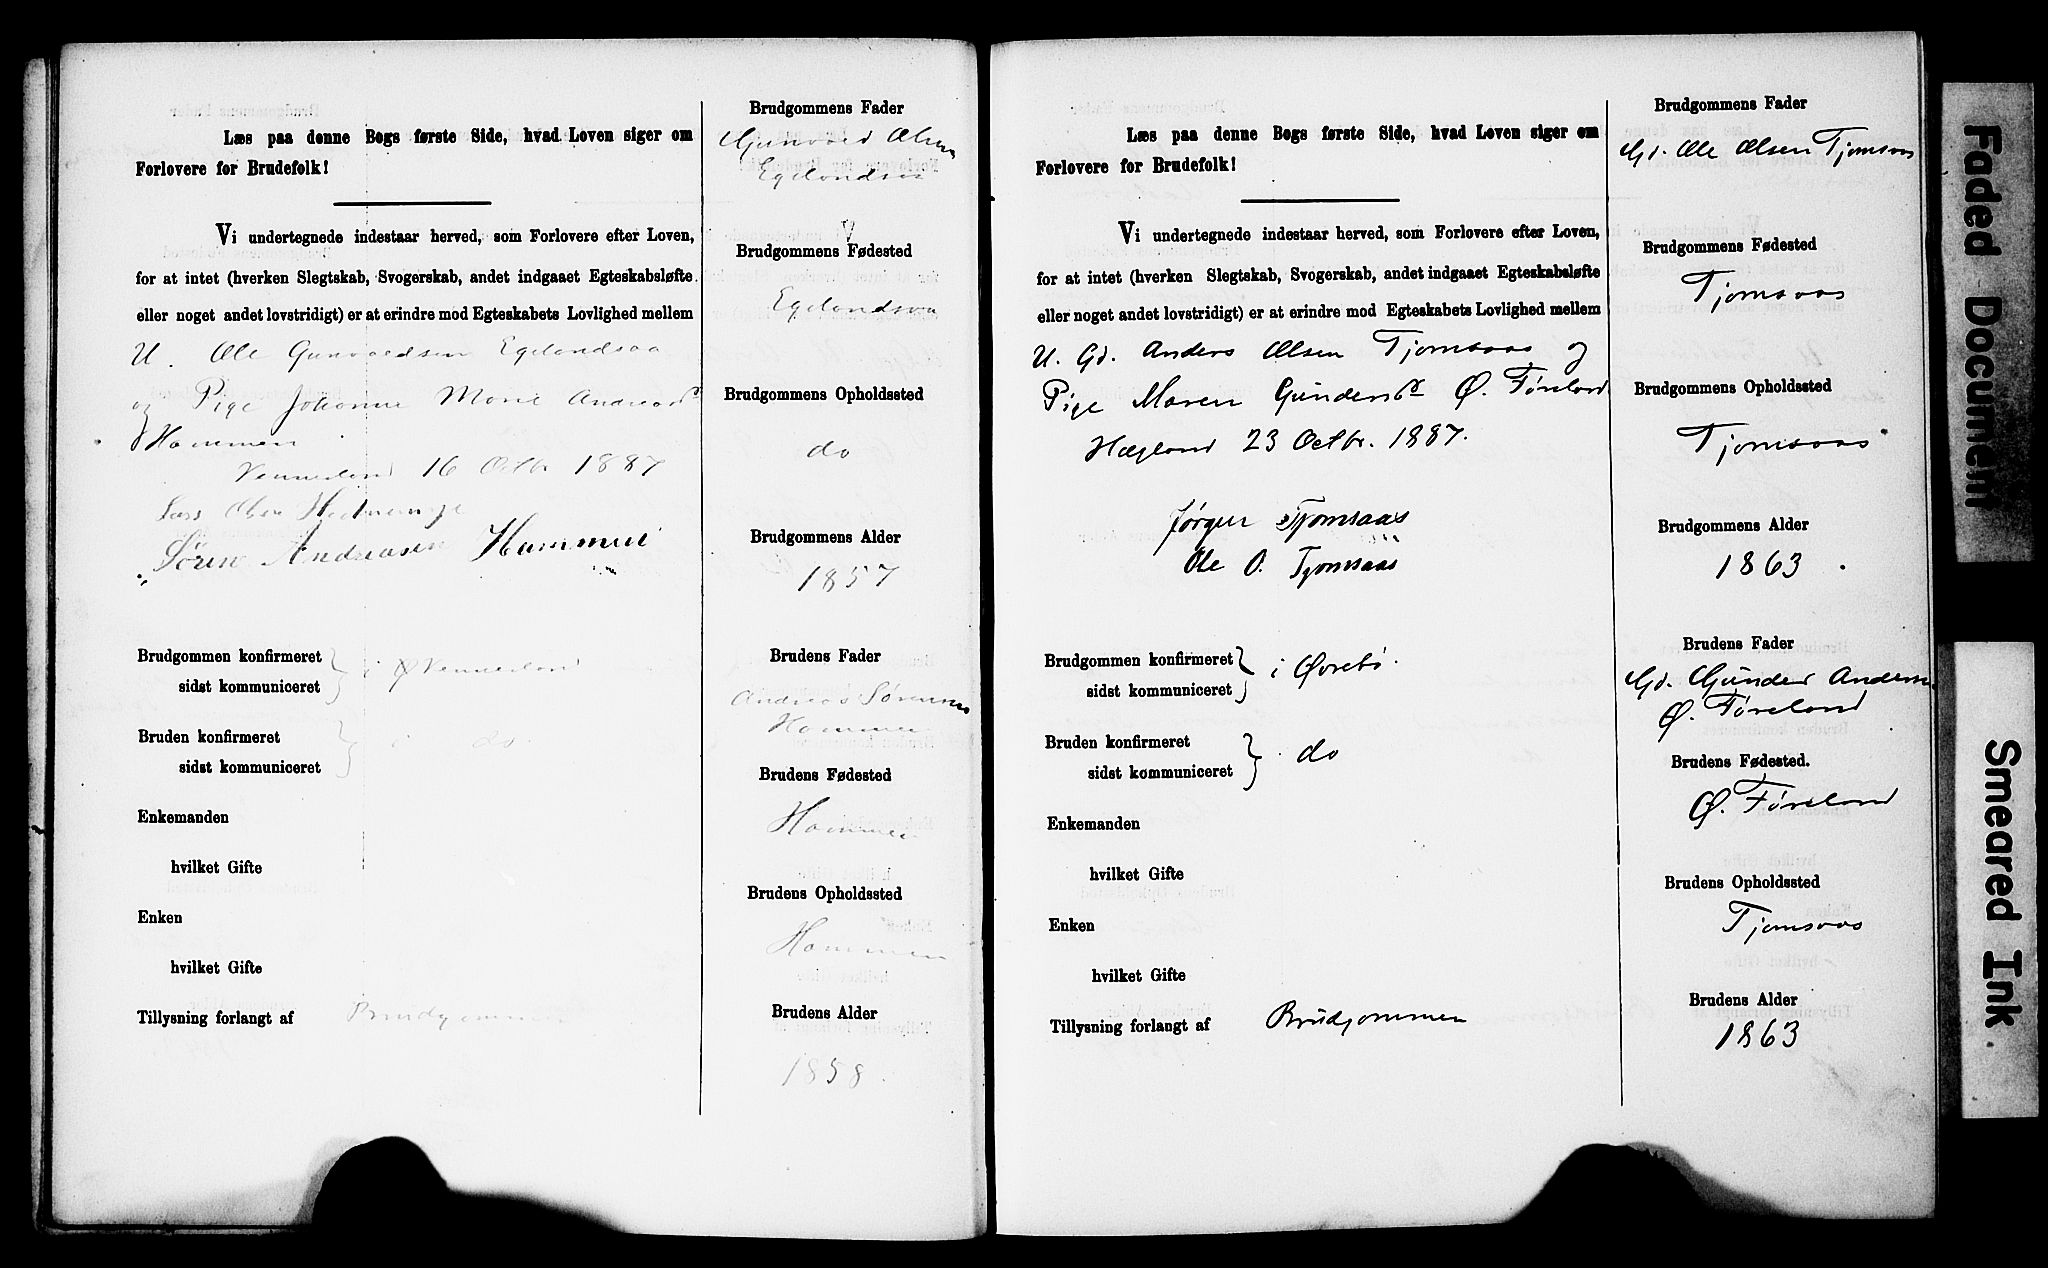 Læs paa denne Bogs første Side, hvad Loven siger om
Forlovere for Brudefolk!
Vi undertegnede indestaar herved, som Forlovere efter Loven,
for at intet (hverken Slegtskab, Svogerskab, andet indgaaet Egteskabsløfte
eller noget andet lovstridigt) er at erindre mod Egteskabets Lovlighed mellem
U. Ole Gunvaldsen Egelandsaa
og Pige Johanne Marie Andreasdr
Hammen
Vennesland 16 Octbr 1887
Lars Olsen
Sören Andreasen Hammen
Brudgommen konfirmeret
sidst kommuniceret
i Ø Vennesland
Bruden konfirmeret
sidst kommuniceret
i do
Enkemanden
hvilket Gifte
Enken
hvilket Gifte
Tillysning forlangt af Brudgommen
Brudgommens Fader
Gunvald Olsen
Egelandsaa
Brudgommens Fødested
Egelandsaa
Brudgommens Opholdssted
do
Brudgommens Alder
1857
Brudens Fader
Andreas Sørensen
Hammen
Brudens Fødested
Hammen
Brudens Opholdssted
Hammen
Brudens Alder
1858
Læs paa denne Bogs første Side, hvad Loven siger om
Forlovere for Brudefolk!
Vi undertegnede indestaar herved, som Forlovere efter Loven,
for at intet (hverken Slegtskab, Svogerskab, andet indgaaet Egteskabsløfte
eller noget andet lovstridigt) er at erindre mod Egteskabets Lovlighed mellem
U. Gd. Anders Olsen Tjomsaas og
Pige Maren Gundersdr Ø. Føreland
Hægeland 23 Octbr. 1887.
Jørgen Tjomsaas
Ole O. Tjomsaas
Brudgommen konfirmeret
sidst kommuniceret
i Øvrebø.
Bruden konfirmeret
sidst kommuniceret
do
Enkemanden
hvilket Gifte
Enken
hvilket Gifte
Tillysning forlangt af Brudgommen
Brudgommens Fader
Gd. Ole Olsen Tjomsaas
Brudgommens Fødested
Tjomsaas
Brudgommens Opholdssted
Tjomsaas
Brudgommens Alder
1863
Brudens Fader
Gd. Gunder Anders.
Ø. Føreland
Brudens Fødested.
Ø. Føreland
Brudens Opholdssted
Tjomsaas
Brudens Alder
1863
Faded Document
Smeared Ink.